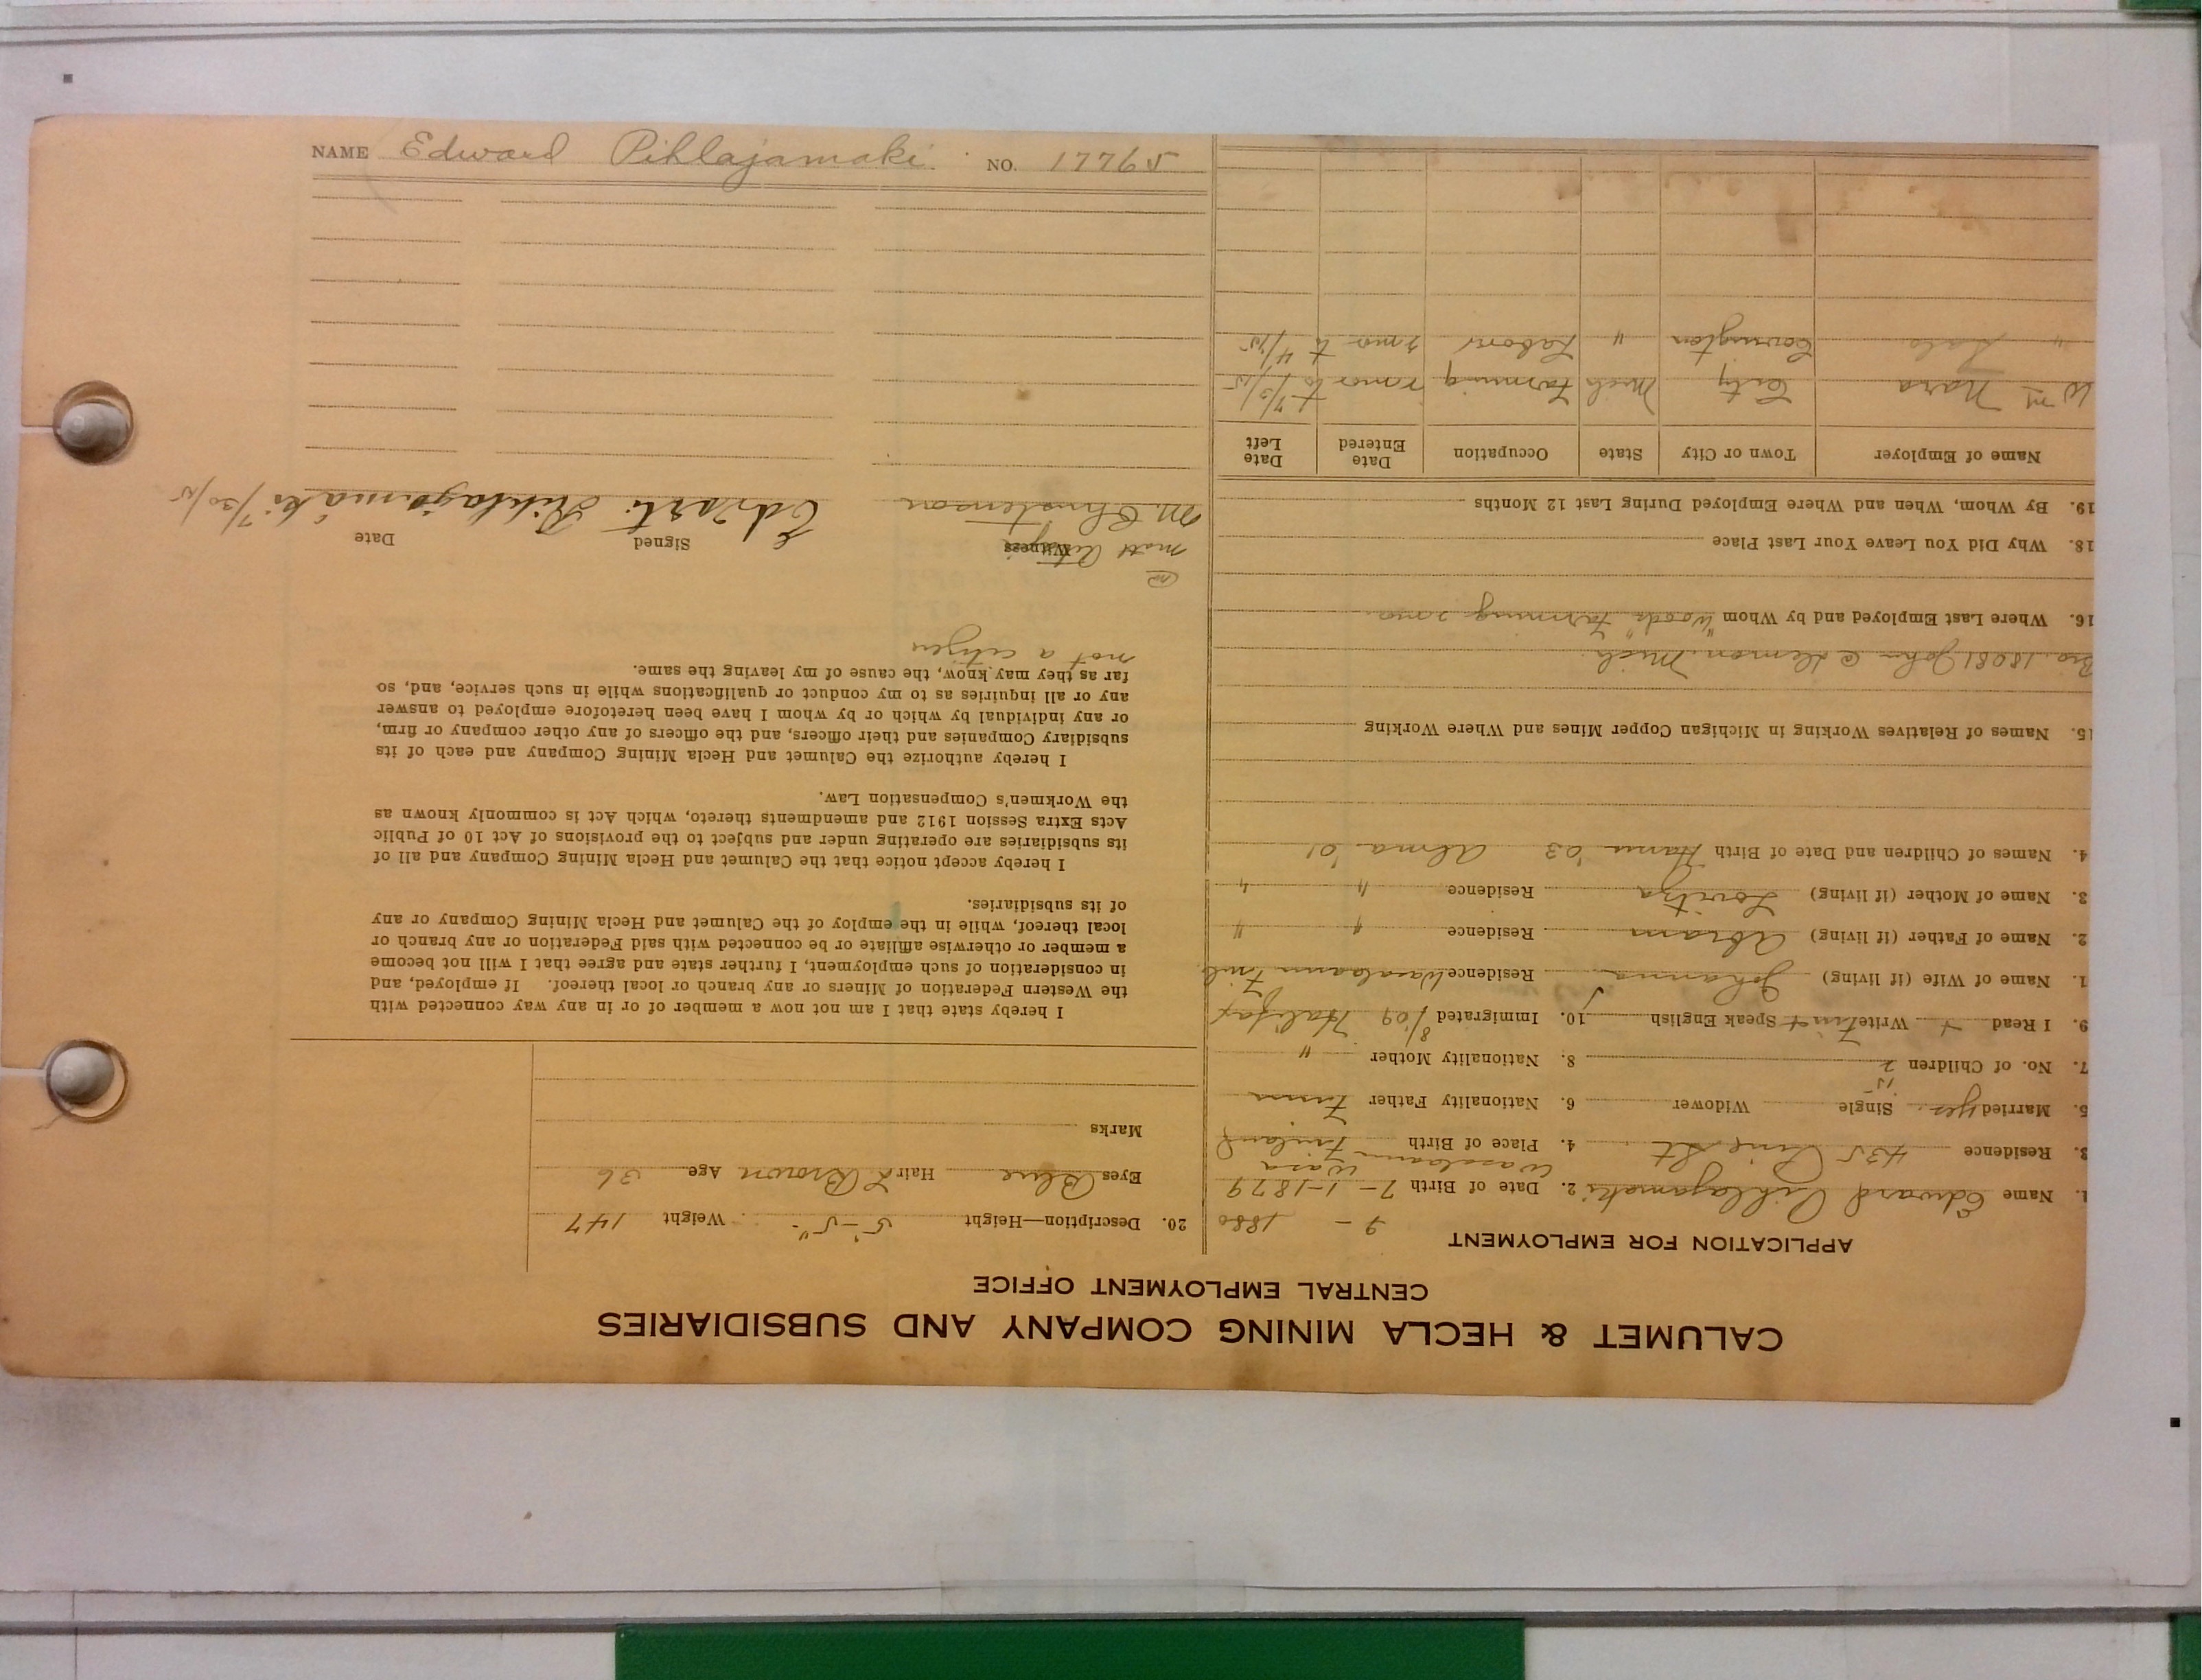 NAME Edward Pihlajamaki NO. 17765
CALUMET & HECLA MINING COMPANY AND SUBSIDIARIES
CENTRAL EMPLOYMENT OFFICE
APPLICATION FOR EMPLOYMENT
9 - 1880
1. Name Edward Pihlajamaki 2. Date of Birth 7-1-1879
Wasa
3. Residence 435 Pine St. 4. Place of Birth Finland
5. Married yes Single Widower 6. Nationality Father Finn
15
7. No. of Children 2 8. Nationality Mother "
9. I Read + Write Finn + Speak English 10. Immigrated 8/09 Halifax
1. Name of Wife (if living) Johanna Residence Finl.
2. Name of Father (if living) Abram Residence " "
3. Name of Mother (if living) Residence " "
4. Names of Children and Date of Birth '03 Alma '01
15. Names of Relatives Working in Michigan Copper Mines and Where Working
Bro. 18081 John @ Mich.
16. Where Last Employed and by Whom "Woods" Farming 2 mo.
18. Why Did You Leave Your Last Place
19. By Whom, When and Where Employed During Last 12 Months
Name of Employer Town or City State Occupation Date Entered Date Left
Wm Nara City Mich Farming to 7/3/15
" Covington " Labor to 4/1/15
20. Description—Height 5'-5" Weight 147
Eyes Blue Hair L Brown Age 36
Marks
I hereby state that I am not now a member of or in any way connected with
the Western Federation of Miners or any branch or local thereof. If employed, and
in consideration of such employment, I further state and agree that I will not become
a member or otherwise affiliate or be connected with said Federation or any branch or
local thereof, while in the employ of the Calumet and Hecla Mining Company or any
of its subsidiaries.
I hereby accept notice that the Calumet and Hecla Mining Company and all of
its subsidiaries are operating under and subject to the provisions of Act 10 of Public
Acts Extra Session 1912 and amendments thereto, which Act is commonly known as
the Workmen's Compensation Law.
I hereby authorize the Calumet and Hecla Mining Company and each of its
subsidiary Companies and their officers, and the officers of any other company or firm,
or any individual by which or by whom I have been heretofore employed to answer
any or all inquiries as to my conduct or qualifications while in such service, and, so
far as they may know, the cause of my leaving the same.
not a citizen
Matt Witness Signed Date
M. Christenson Edvarti Pihlajamäki 7/30/15